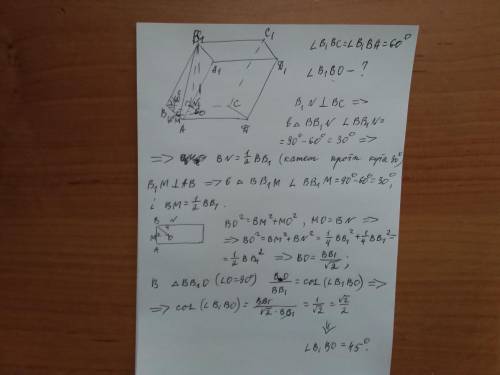 B₁ C₁
A₁ D₁
B N C
M O
A D
∠B₁BC=∠B₁BA=60°
∠B₁BO - ?
B₁N⊥BC =>
в △BB₁N ∠BB₁N=
=90°-60°=30° =>
=> BN=½BB₁ (катет проти кута 30°)
B₁M⊥AB => в △BB₁M ∠BB₁M=90°-60°=30°,
і BM=½BB₁.
B N
M O
A
BO²=BM²+MO², MO=BN =>
=> BO²=BM²+BN²=¼BB₁²+¼BB₁²=
=½BB₁² => BO=BB₁/√2;
В △BB₁O (∠O=90°) BO/BB₁=cos(∠B₁BO) =>
=> cos(∠B₁BO)=BB₁/(√2·BB₁)=1/√2=√2/2
⇓
∠B₁BO=45°.